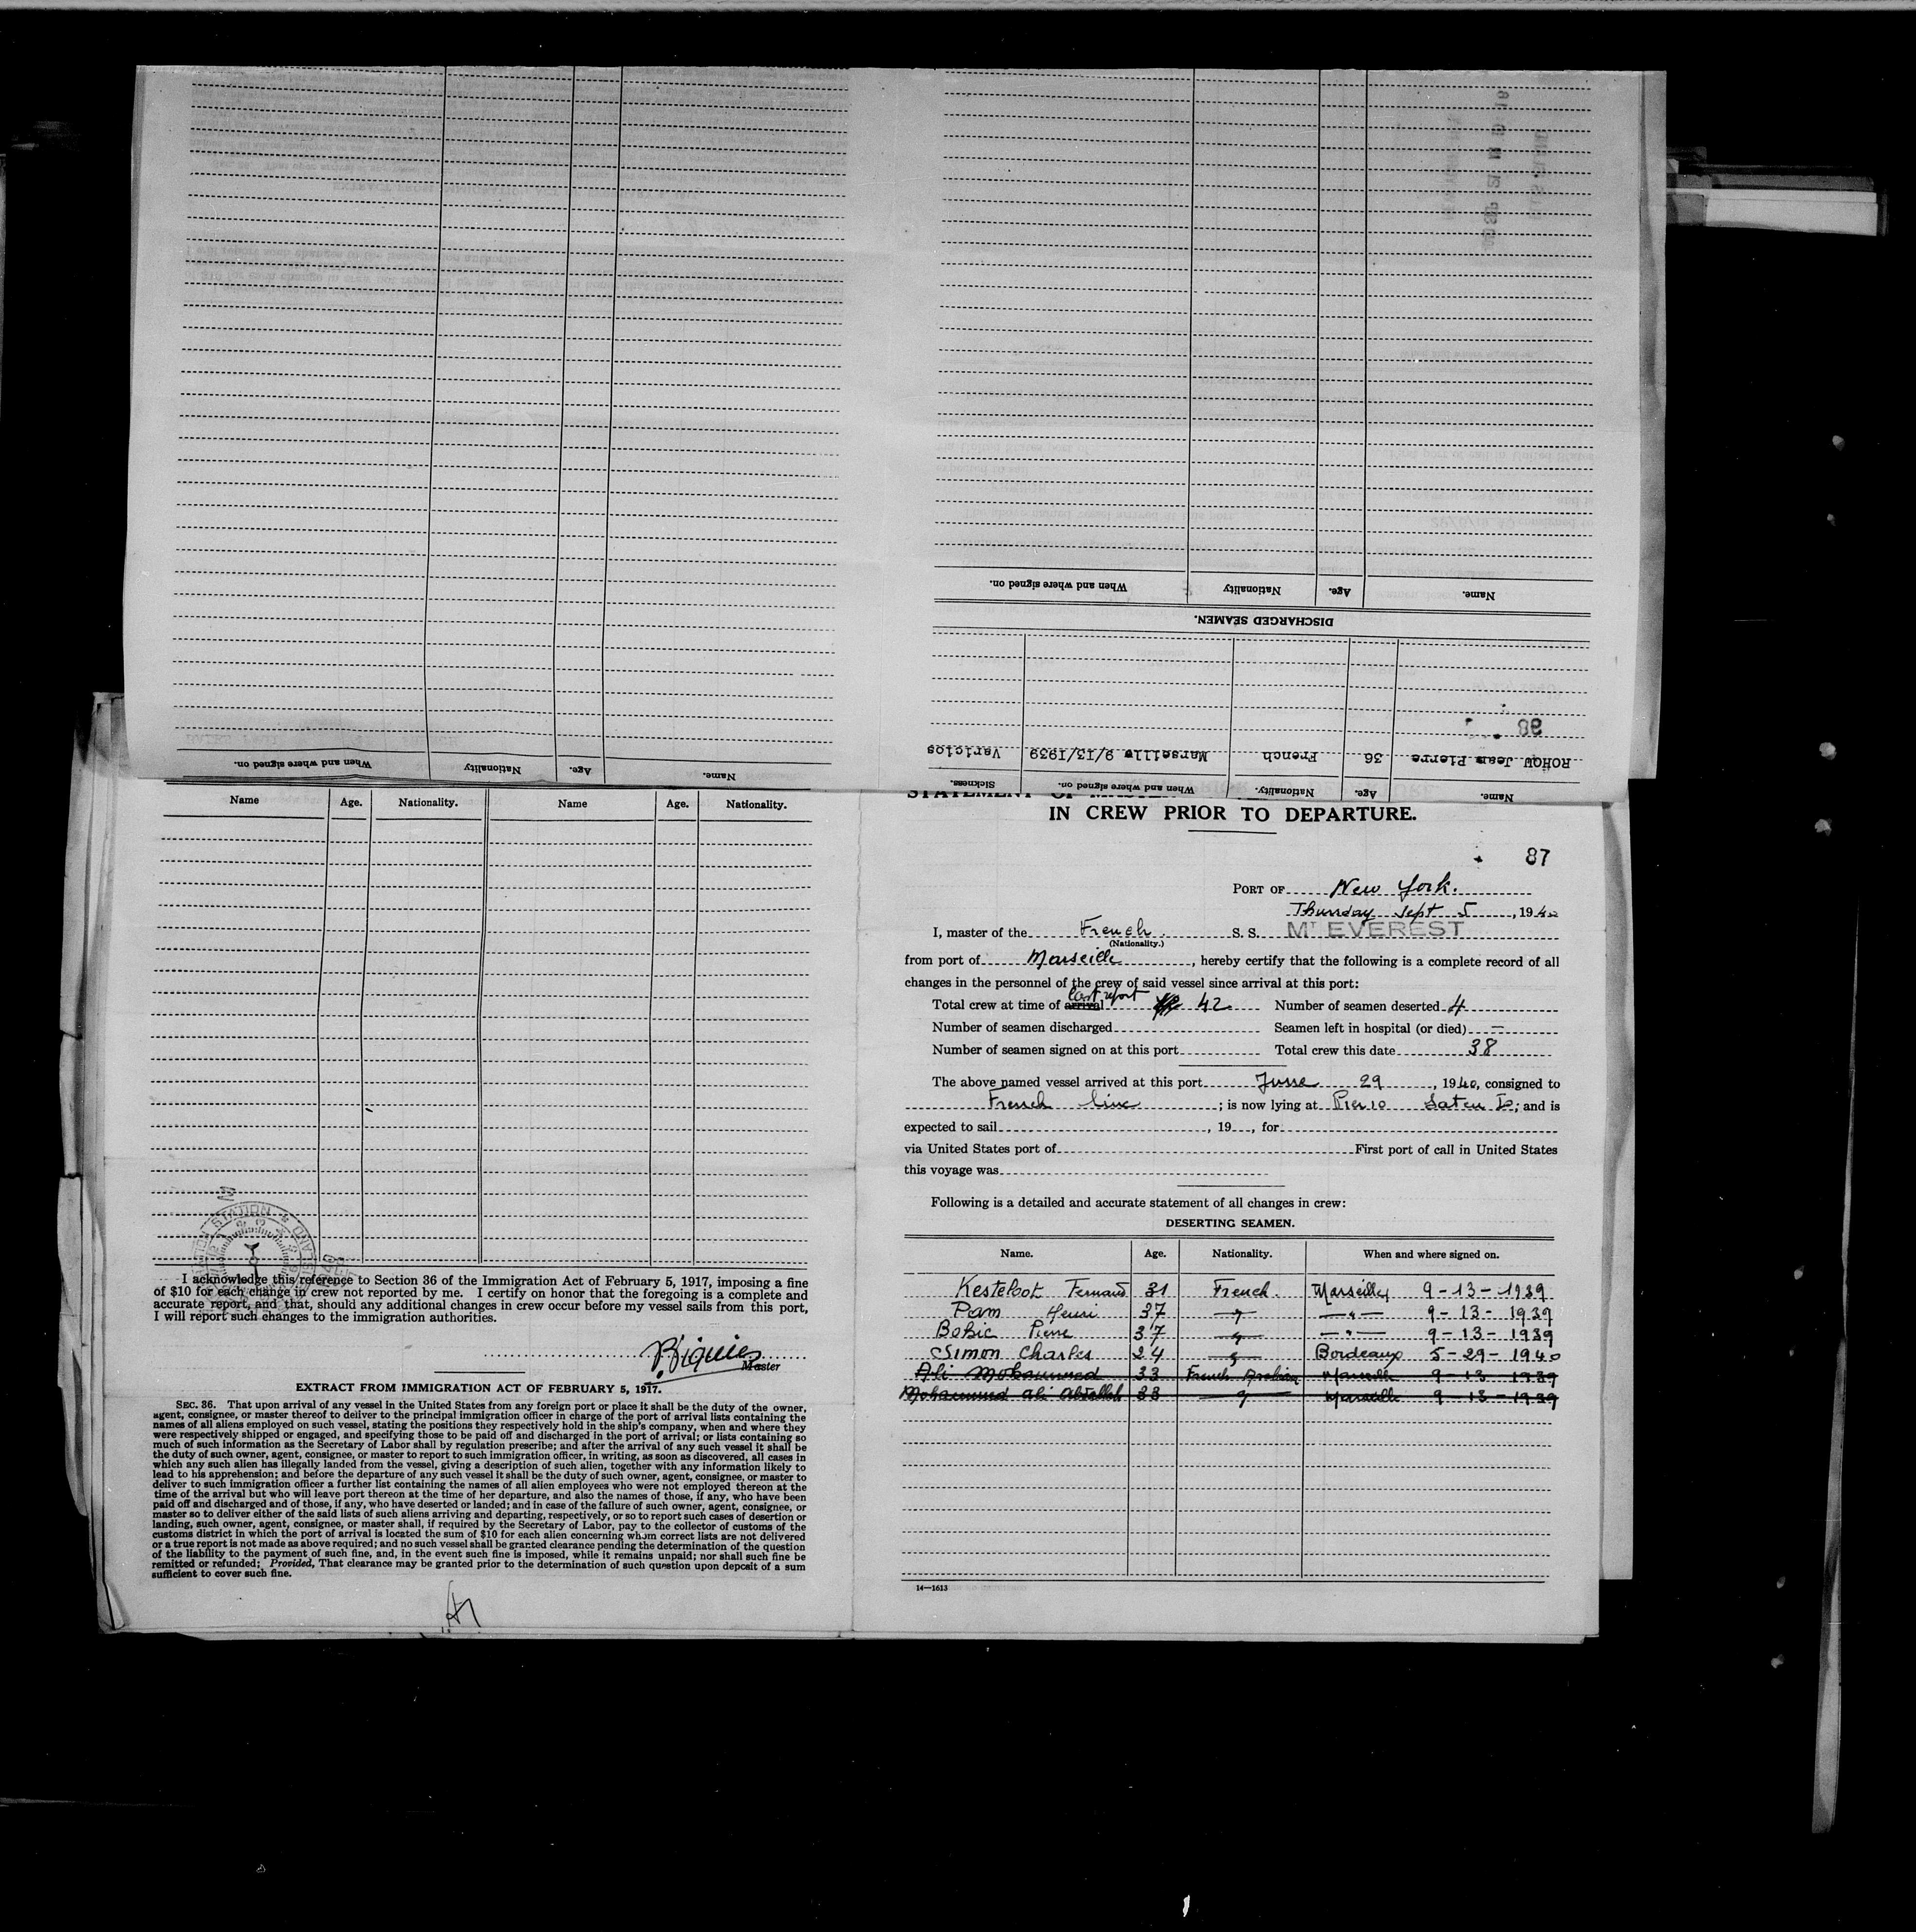 Name. Age. Nationality. When and where signed on. Sickness.
ROHOU Jean Pierre 36 French Marseille 9/13/1939 Varicios
38
DISCHARGED SEAMEN.
Name. Age. Nationality When and where signed on.
Name. Age. Nationality When and where signed on.
Name Age. Nationality. Name Age. Nationality.
I acknowledge this reference to Section 36 of the Immigration Act of February 5, 1917, imposing a fine
of $10 for each change in crew not reported by me. I certify on honor that the foregoing is a complete and
accurate report, and that, should any additional changes in crew occur before my vessel sails from this port,
I will report such changes to the immigration authorities.
Master
EXTRACT FROM IMMIGRATION ACT OF FEBRUARY 5, 1917.
SEC. 36. That upon arrival of any vessel in the United States from any foreign port or place it shall be the duty of the owner,
agent, consignee, or master thereof to deliver to the principal immigration officer in charge of the port of arrival lists containing the
names of all aliens employed on such vessel, stating the positions they respectively hold in the ship's company, when and where they
were respectively shipped or engaged, and specifying those to be paid off and discharged in the port of arrival; or lists containing so
much of such information as the Secretary of Labor shall by regulation prescribe; and after the arrival of any such vessel it shall be
the duty of such owner, agent, consignee, or master to report to such immigration officer, in writing, as soon as discovered, all cases in
which any such alien has illegally landed from the vessel, giving a description of such alien, together with any information likely to
lead to his apprehension; and before the departure of any such vessel it shall be the duty of such owner, agent, consignee, or master to
deliver to such immigration officer a further list containing the names of all alien employees who were not employed thereon at the
time of the arrival but who will leave port thereon at the time of her departure, and also the names of those, if any, who have been
paid off and discharged and of those, if any, who have deserted or landed; and in case of the failure of such owner, agent, consignee, or
master so to deliver either of the said lists of such aliens arriving and departing, respectively, or so to report such cases of desertion or
landing, such owner, agent, consignee, or master shall, if required by the Secretary of Labor, pay to the collector of customs of the
customs district in which the port of arrival is located the sum of $10 for each alien concerning whom correct lists are not delivered
or a true report is not made as above required; and no such vessel shall be granted clearance pending the determination of the question
of the liability to the payment of such fine, and, in the event such fine is imposed, while it remains unpaid; nor shall such fine be
remitted or refunded: Provided, That clearance may be granted prior to the determination of such question upon deposit of a sum
sufficient to cover such fine.
IN CREW PRIOR TO DEPARTURE.
87
PORT OF New York.
Thursday Sept 5, 1940
I, master of the French. S. S. MT EVEREST
(Nationality.)
from port of Marseille, hereby certify that the following is a complete record of all
changes in the personnel of the crew of said vessel since arrival at this port:
last report
Total crew at time of arrival 42 Number of seamen deserted 4
Number of seamen discharged Seamen left in hospital (or died) —
Number of seamen signed on at this port Total crew this date 38
The above named vessel arrived at this port June 29, 1940, consigned to
French Line; is now lying at Pier 10 Staten Is; and is
expected to sail, 19, for
via United States port of First port of call in United States
this voyage was
Following is a detailed and accurate statement of all changes in crew:
DESERTING SEAMEN.
Name. Age. Nationality. When and where signed on.
Kesteloot Fernand 31 French. Marseilles 9-13-1939
Pam Henri 37 —"— —"— 9-13-1939
Bobic Pierre 37 —"— —"— 9-13-1939
Simon Charles 24 —"— Bordeaux 5-29-1940
Ali Mohammed 33 French Arabian Marseille 9-13-1939
Mohammed Ali Abdallah 38 —"— Marseille 9-13-1939
14—1613